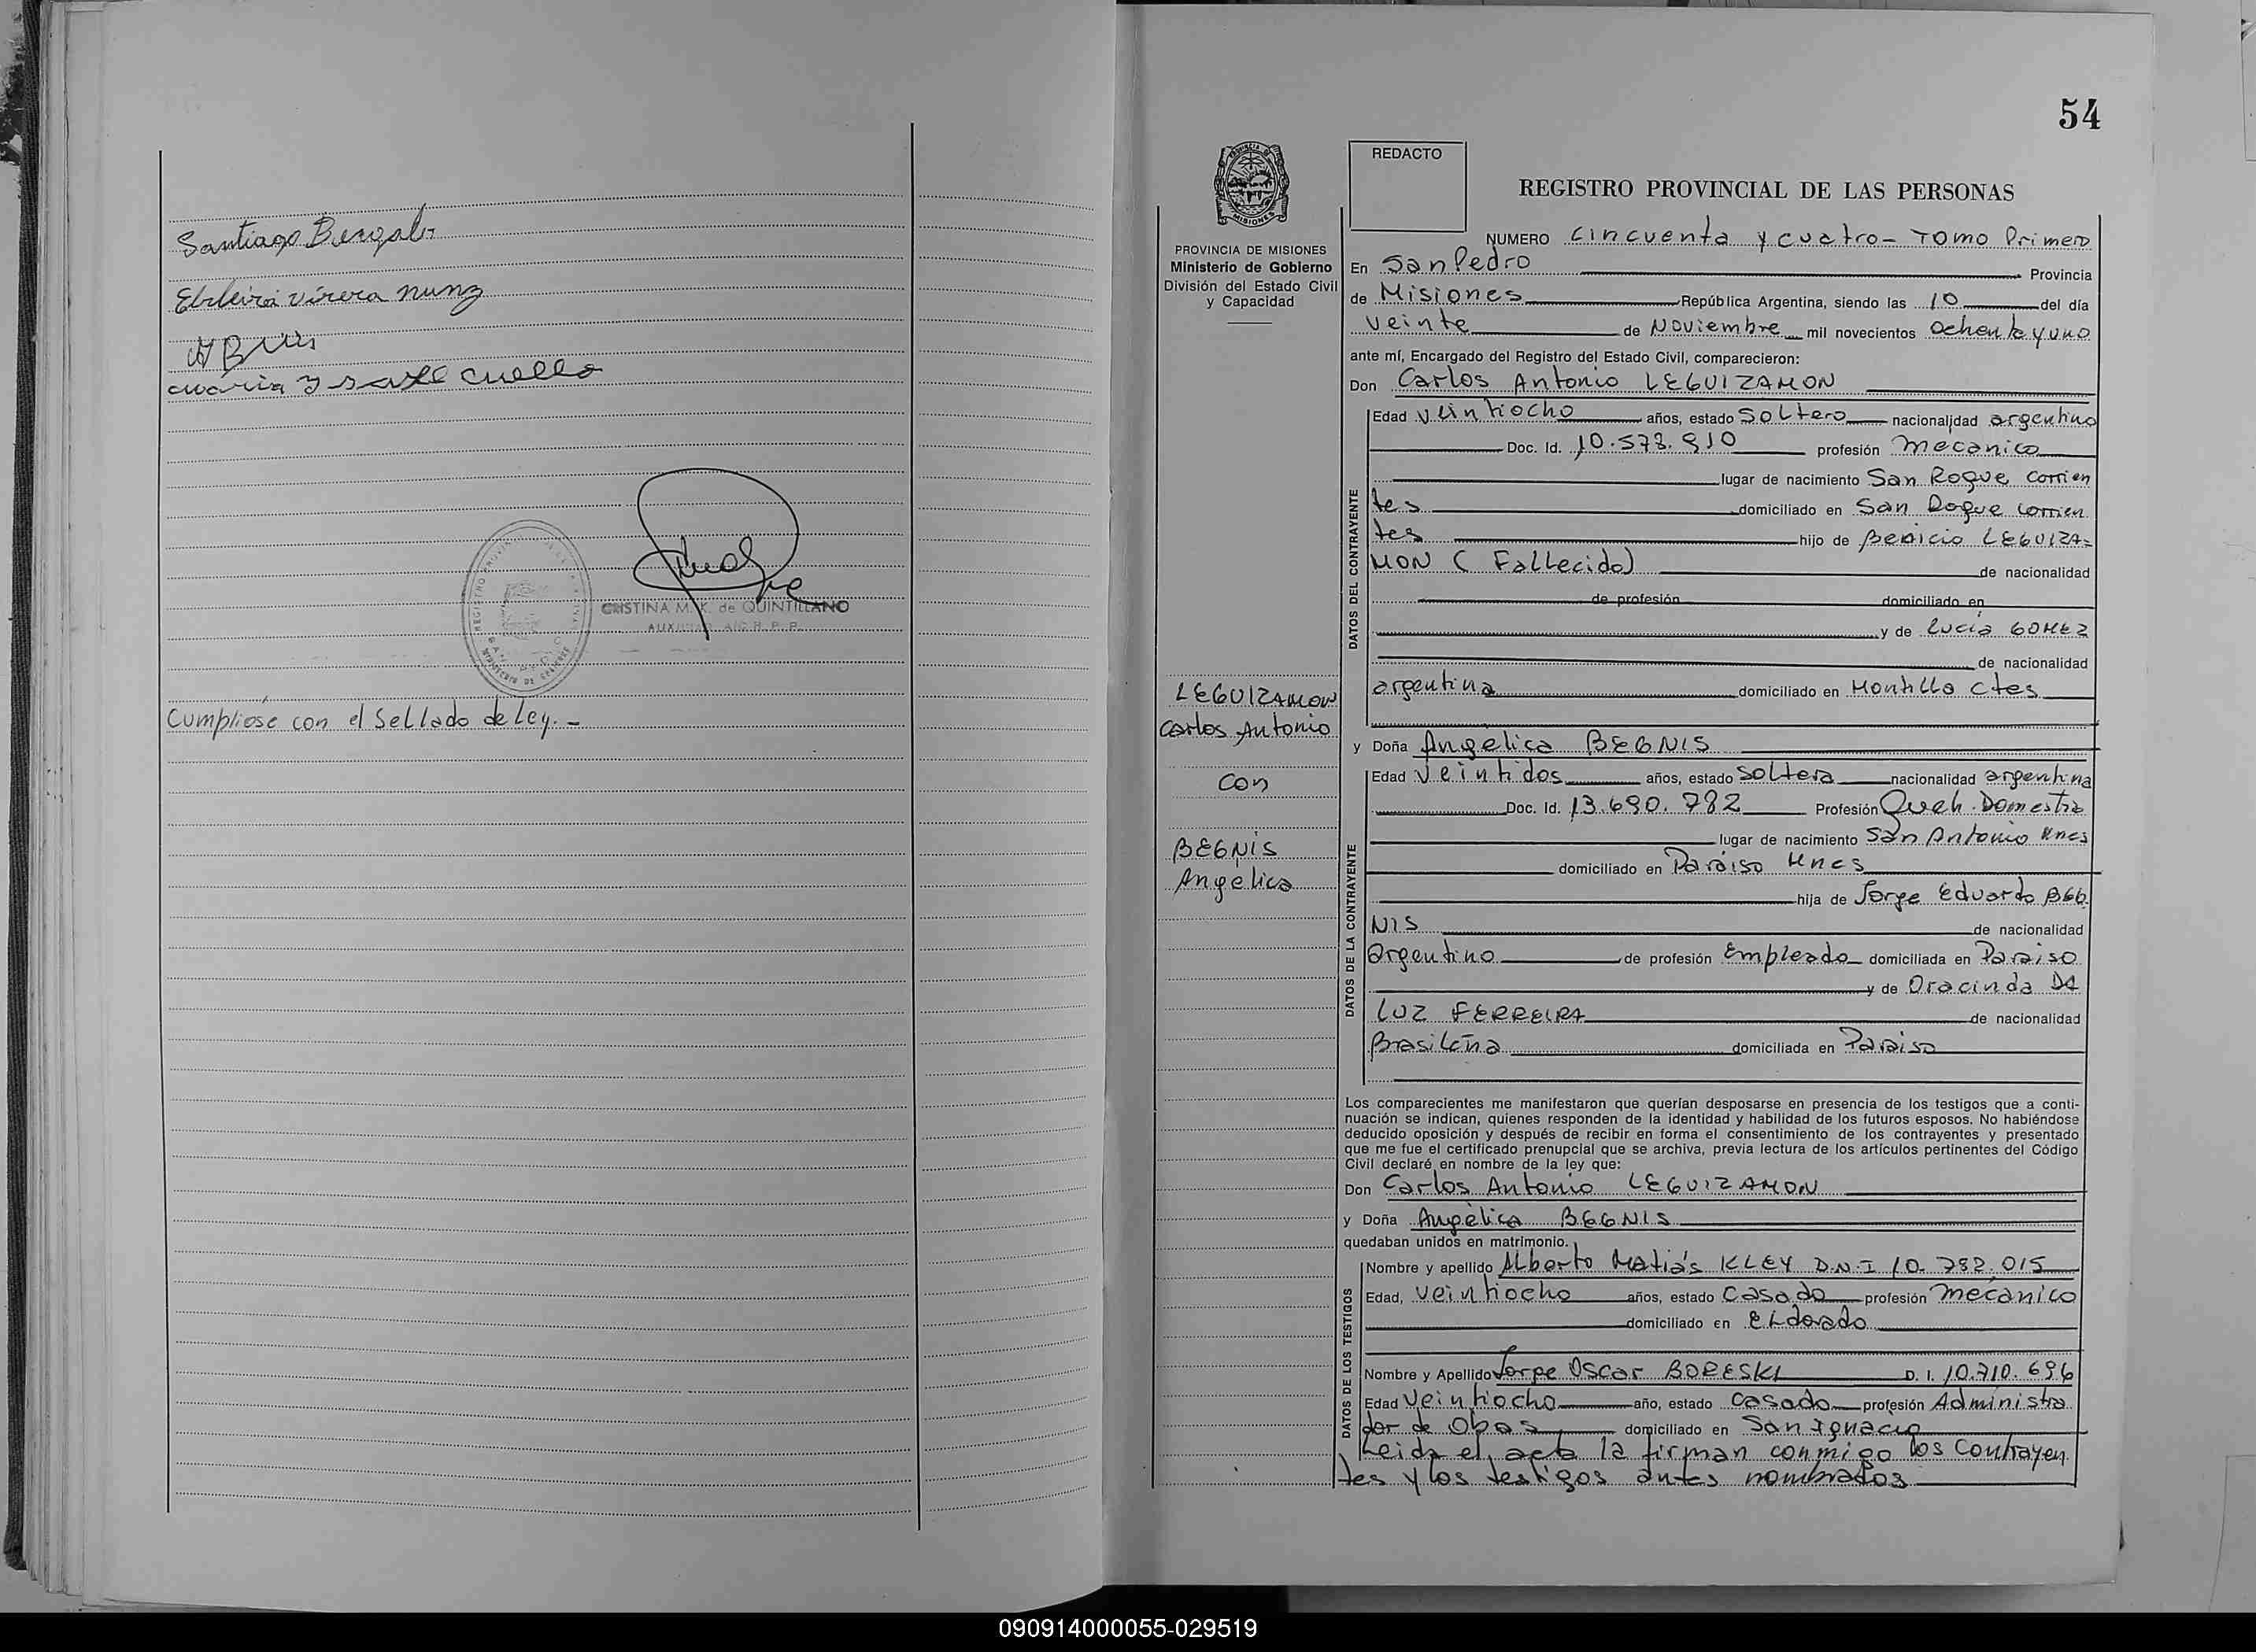 Santiago
nunz
cuello
REGISTRO
CRISTINA M. K. de QUINTILLANO
AUXILIAR R. P. P.
Cumpliose con el Sellado de Ley. -
54
REDACTO
REGISTRO PROVINCIAL DE LAS PERSONAS
PROVINCIA DE MISIONES
Ministerio de Gobierno
División del Estado Civil
y Capacidad
NUMERO cincuenta y cuatro - Tomo Primero
En San Pedro Provincia
de Misiones República Argentina, siendo las 10 del día
veinte de Noviembre mil novecientos ochenta y uno
ante mí, Encargado del Registro del Estado Civil, comparecieron:
Don Carlos Antonio LEGUIZAMON
DATOS DEL CONTRAYENTE
Edad veintiocho años, estado Soltero nacionalidad argentino
Doc. Id. profesión mecanico
lugar de nacimiento San Roque Corrien
tes domiciliado en San Roque Corrien
tes hijo de LEGUIZA-
MON (Fallecido) de nacionalidad
de profesión domiciliado en
y de Lucia GOMEZ
de nacionalidad
argentina domiciliado en Ctes
LEGUIZAMON
Carlos Antonio
con
BEGNIS
Angelica
y Doña Angélica BEGNIS
DATOS DE LA CONTRAYENTE
Edad Veintidos años, estado Soltera nacionalidad argentina
Doc. Id. 13.690.782 Profesión Queh. Domestic
lugar de nacimiento San Antonio Mnes
domiciliado en Paraiso Mnes
hija de Jorge Eduardo BEG
NIS de nacionalidad
Argentino de profesión Empleado domiciliada en Paraiso
y de Oracinda DA
LUZ FERREIRA de nacionalidad
Brasileña domiciliada en Paraiso
Los comparecientes me manifestaron que querían desposarse en presencia de los testigos que a conti-
nuación se indican, quienes responden de la identidad y habilidad de los futuros esposos. No habiéndose
deducido oposición y después de recibir en forma el consentimiento de los contrayentes y presentado
que me fue el certificado prenupcial que se archiva, previa lectura de los artículos pertinentes del Código
Civil declaré en nombre de la ley que:
Don Carlos Antonio LEGUIZAMON
y Doña Angélica BEGNIS
quedaban unidos en matrimonio.
DATOS DE LOS TESTIGOS
Nombre y apellido Alberto Matiás KLEY D.N.I 10.782.015
Edad, veintiocho años, estado Casado profesión mecánico
domiciliado en Eldorado
Nombre y Apellido Jorge Oscar BORESKI D. I. 10.710.696
Edad veintiocho año, estado Casado profesión Administra
dor de Obas domiciliado en San Ignacio
Leida el acta la firman conmigo los Contrayen
tes y los testigos antes nombrados
090914000055-029519